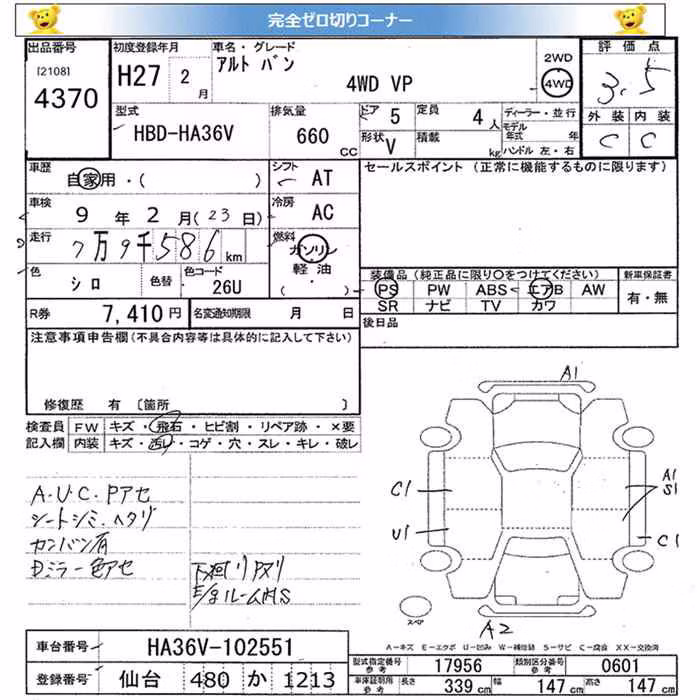 完全ゼロ切りコーナー
出品番号
[2108]
4370
初度登録年月
H27 2月
車名・グレード
アルト バン
4WD VP
2WD
4WD
評価点
3.5
外装 内装
C C
型式
HBD-HA36V
排気量
660 CC
ドア 5
定員 4人
形状 V
積載 kg
ディーラー・並行
モデル年式 年
ハンドル 左・右
車歴
自家用・( )
シフト AT
車検
9年2月(23日)
冷房 AC
走行
7万9千586km
燃料
ガソリン
軽油
( )
色 シロ
色替
色コード
26U
R券 7,410円
名変通知期限 月 日
セールスポイント(正常に機能するものに限ります)
装備品(純正品に限り○をつけてください)
新車保証書
PS PW ABS エアB AW
有・無
SR ナビ TV カワ
後日品
注意事項申告欄(不具合内容等は具体的に記入して下さい)
修復歴 有 〔箇所 〕
検査員記入欄
FW キズ・飛石・ヒビ割・リペア跡・×要
内装 キズ・汚レ・コゲ・穴・スレ・キレ・破レ
A・U・C・Pアセ
シートシミ・ヘタリ
カンバン有
Dミラー色アセ
下廻りPヌリ
E/gルーム内S
A1
C1
U1
A1
S1
C1
スペア
A2
A-キズ E-エクボ U-凹み W-補修跡 S-サビ C-腐食 XX-交換済
車台番号 HA36V-102551
登録番号 仙台 480 か 1213
型式指定番号 参考 17956
類別区分番号 参考 0601
車庫証明用 参考 長さ 339cm 幅 147cm 高さ 147cm